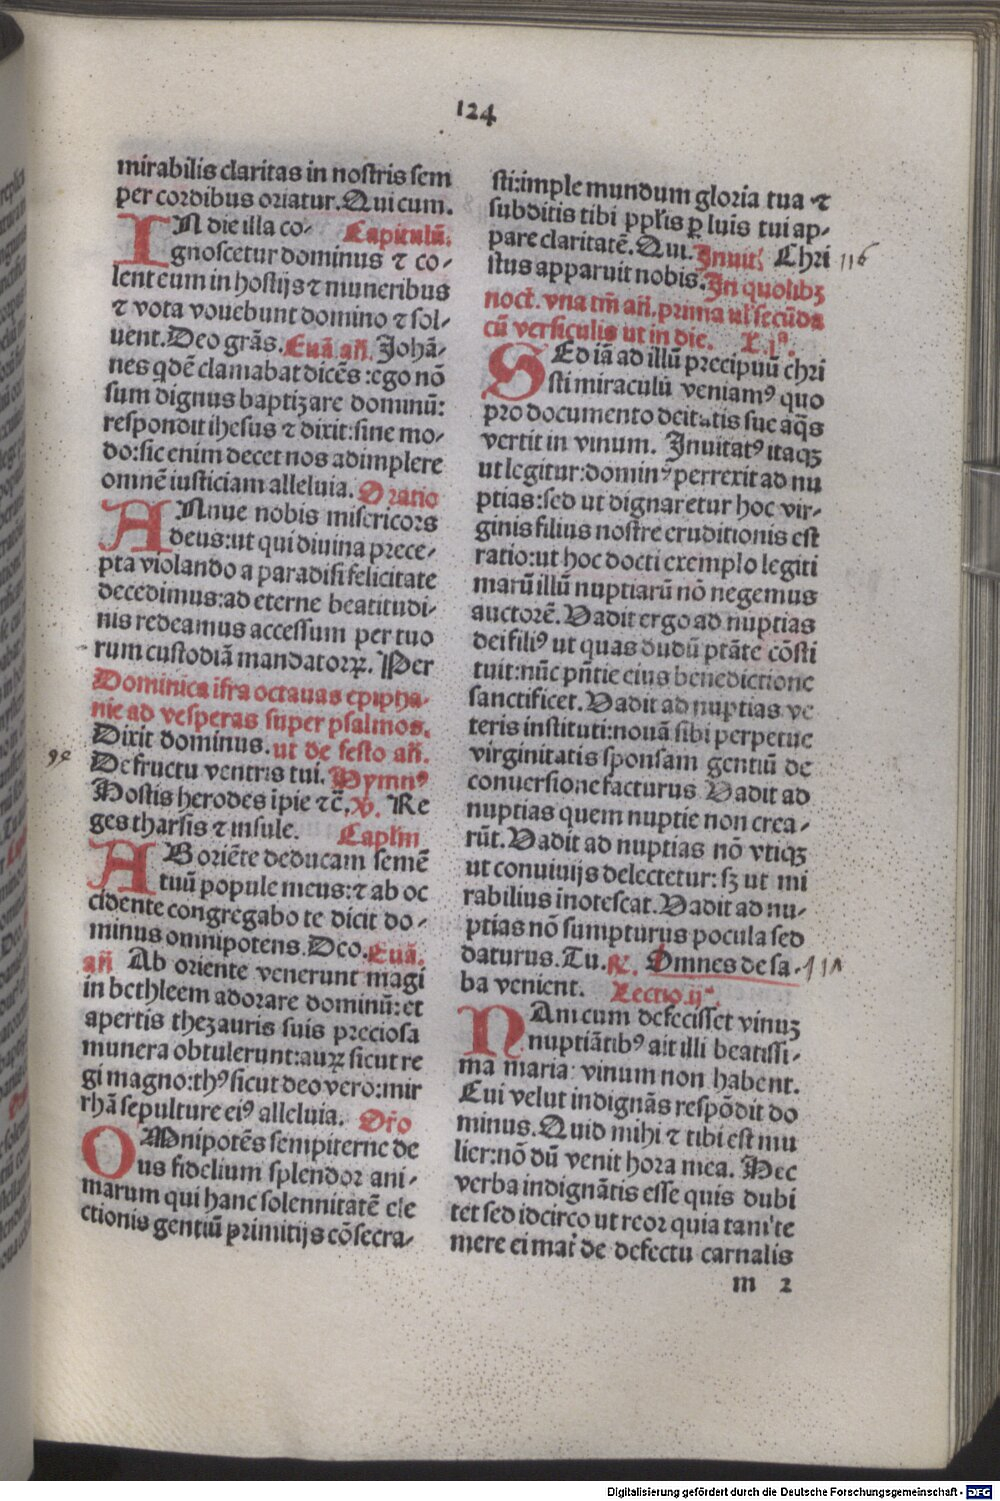 124
mirabilis claritas in nostris sem
per cordibus oriatur. Qui cum.
IN die illa co⸗ Capitulũ.
gnoscetur dominus ⁊ co⸗
lent eum in hostijs ⁊ muneribus
⁊ vota vovebunt domino ⁊ sol⸗
uent. Deo grãs. Euã. añ. Johã⸗
nes qdẽ clamabat dicẽs : ego nõ
sum dignus baptizare dominũ:
respondit ihesus ⁊ dixit: sine mo⸗
do: sic enim decet nos adimplere
omnẽ iusticiam alleluia. Oratio
ANnue nobis misericors
deus: ut qui divina prece⸗
pta violando a paradisi felicitate
decedimus: ad eterne beatitudi⸗
nis redeamus accessum per tuo
rum custodiã mandatorꝝ. Per
Dominica ifra octauas epipha⸗
nie ad vesperas super psalmos.
Dixit dominus. ut de festo añ.
De fructu ventris tui. Hymnꝰ
Hostis herodes ipie ⁊c̃. ℣. Re
ges tharsis ⁊ insule. Caplm̃
AB oriẽte deducam semẽ
tuũ popule meus: ⁊ ab oc
cidente congregabo te dicit do⸗
minus omnipotens. Deo. Euã.
añ Ab oriente venerunt magi
in bethleem adorare dominũ: et
apertis thezauris suis preciosa
munera obtulerunt: aurꝝ sicut re
gi magno: thꝰ sicut deo vero: mir
rhã sepulture eiꝰ alleluia. Or̃o
OMnipotẽs sempiterne de
us fidelium splendor ani⸗
marum qui hanc solennitatẽ ele
ctionis gentiũ primitijs cõsecra⸗
sti: imple mundum gloria tua ⁊
subditis tibi pplis ꝑ luis tui ap⸗
pare claritatẽ. Qui. Inuit. Chri 116
stus apparuit nobis. In quolibꝫ
noct̃. vna tm̃ añ. prima ul secũda
cũ versiculis ut in die. L. jª.
SEd iã ad illũ precipuũ chri
sti miraculũ veniamꝰ quo
pro documento deitatis sue aq̃s
vertit in vinum. Inuitatꝰ itaqꝫ
ut legitur: dominꝰ perrexit ad nu
ptias: sed ut dignaretur hoc vir⸗
ginis filius nostre eruditionis est
ratio: ut hoc docti exemplo legiti
marũ illũ nuptiarũ nõ negemus
auctorẽ. Vadit ergo ad nuptias
dei filiꝰ ut quas dudũ ptãte cõsti
tuit: nũc pñtie eius benedictione
sanctificet. Vadit ad nuptias ve
teris instituti: nouã sibi perpetue
virginitatis sponsam gentiũ de
conuersione facturus. Vadit ad
nuptias quem nuptie non crea⸗
rũt. Vadit ad nuptias nõ vtiqꝫ
ut conuiuijs delectetur: sꝫ ut mi
rabilius inotescat. Vadit ad nu⸗
ptias nõ sumpturus pocula sed
daturus. Tu. ℟. Omnes de sa⸗
ba venient. Lectio. ijª.
NAm cum defecisset vinuꝫ
nuptiãtibꝰ ait illi beatissi⸗
ma maria: vinum non habent.
Cui velut indignãs respõdit do
minus. Quid mihi ⁊ tibi est mu
lier: nõ dũ venit hora mea. Hec
verba indignãtis esse quis dubi
tet sed idcirco ut reor quia tam te
mere ei mat̃ de defectu carnalis
m 2
Digitalisierung gefördert durch die Deutsche Forschungsgemeinschaft - DFG